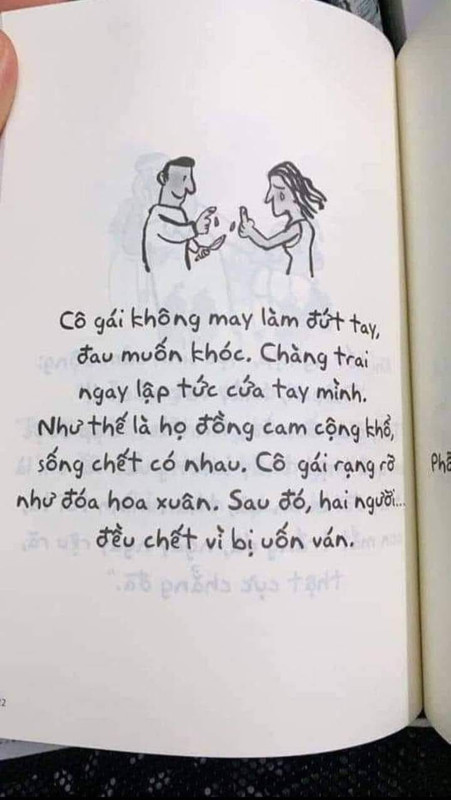 Cô gái không may làm đứt tay,
đau muốn khóc. Chàng trai
ngay lập tức cứa tay mình.
Như thế là họ đồng cam cộng khổ,
sống chết có nhau. Cô gái rạng rỡ
như đóa hoa xuân. Sau đó, hai người...
đều chết vì bị uốn ván.
thật cực chẳng đã."